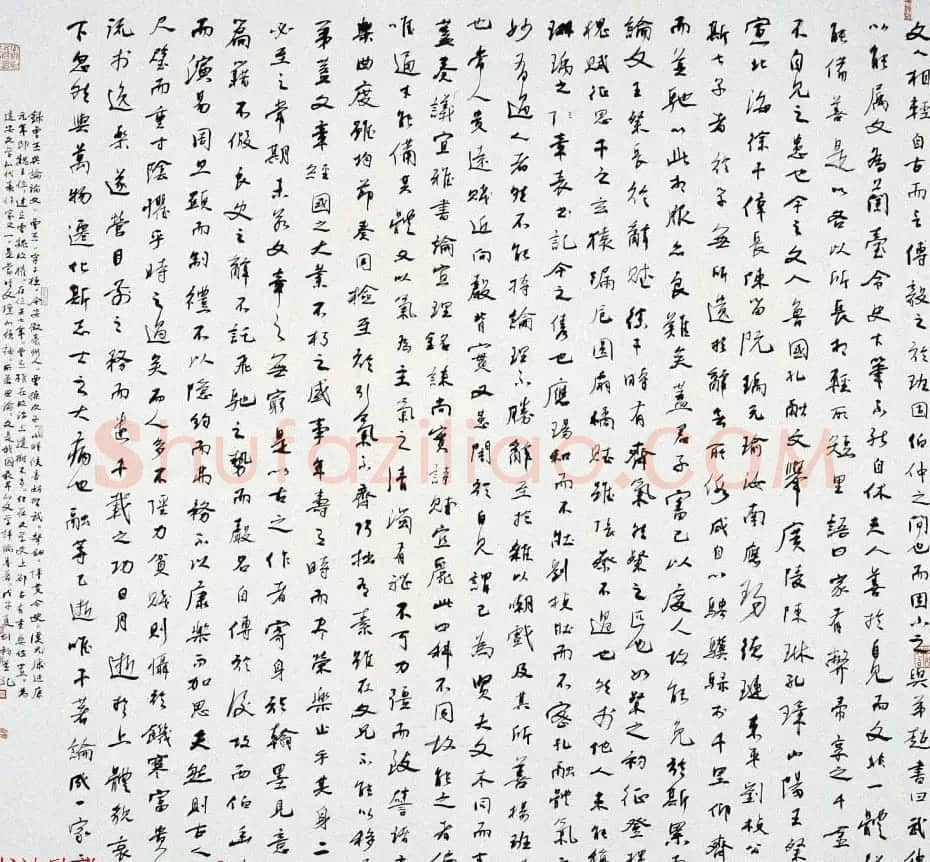 文人相輕自古而然傅毅之於班固伯仲之間也而固小之與弟超書曰武仲
以能屬文為蘭臺令史下筆不能自休夫人善於自見而文非一體
能備善是以各以所長相輕所短里語曰家有弊帚享之千金
不自見之患也今之文人魯國孔融文舉廣陵陳琳孔璋山陽王粲
宣北海徐干偉長陳留阮瑀元瑜汝南應瑒德璉東平劉楨公
斯七子者於學無所遺於辭無所假咸自以騁驥騄於千里仰齊
而並馳以此相服亦良難矣蓋君子審己以度人故能免於斯累而
論文王粲長於辭賦徐干時有齊氣然粲之匹也如粲之初征登樓
槐賦征思干之玄猿漏卮圓扇橘賦雖張蔡不過也然於他人未能稱
琳瑀之章表書記今之雋也應瑒和而不壯劉楨壯而不密孔融體氣
妙有過人者然不能持論理不勝辭至於雜以嘲戲及其所善揚班
也常人貴遠賤近向聲背實又患闇於自見謂己為賢夫文本同而
蓋奏議宜雅書論宜理銘誄尚實詩賦宜麗此四科不同故能之者偏
唯通才能備其體文以氣為主氣之清濁有體不可力強而致譬諸
樂曲度雖均節奏同檢至於引氣不齊巧拙有素雖在父兄不能以移
弟蓋文章經國之大業不朽之盛事年壽有時而盡榮樂止乎其身二
必至之常期未若文章之無窮是以古之作者寄身於翰墨見意
篇籍不假良史之辭不託飛馳之勢而聲名自傳於後故西伯幽
而演易周旦顯而制禮不以隱約而弗務不以康樂而加思夫然則古人
尺璧而重寸陰懼乎時之過矣而人多不強力貧賤則懾於饑寒富貴
流於逸樂遂營目前之務而遺千載之功日月逝於上體貌衰
下忽然與萬物遷化斯志士之大痛也融等已逝唯干著論成一家
錄曹丕典論論文曹丕字子桓
Shufaziliao.COM